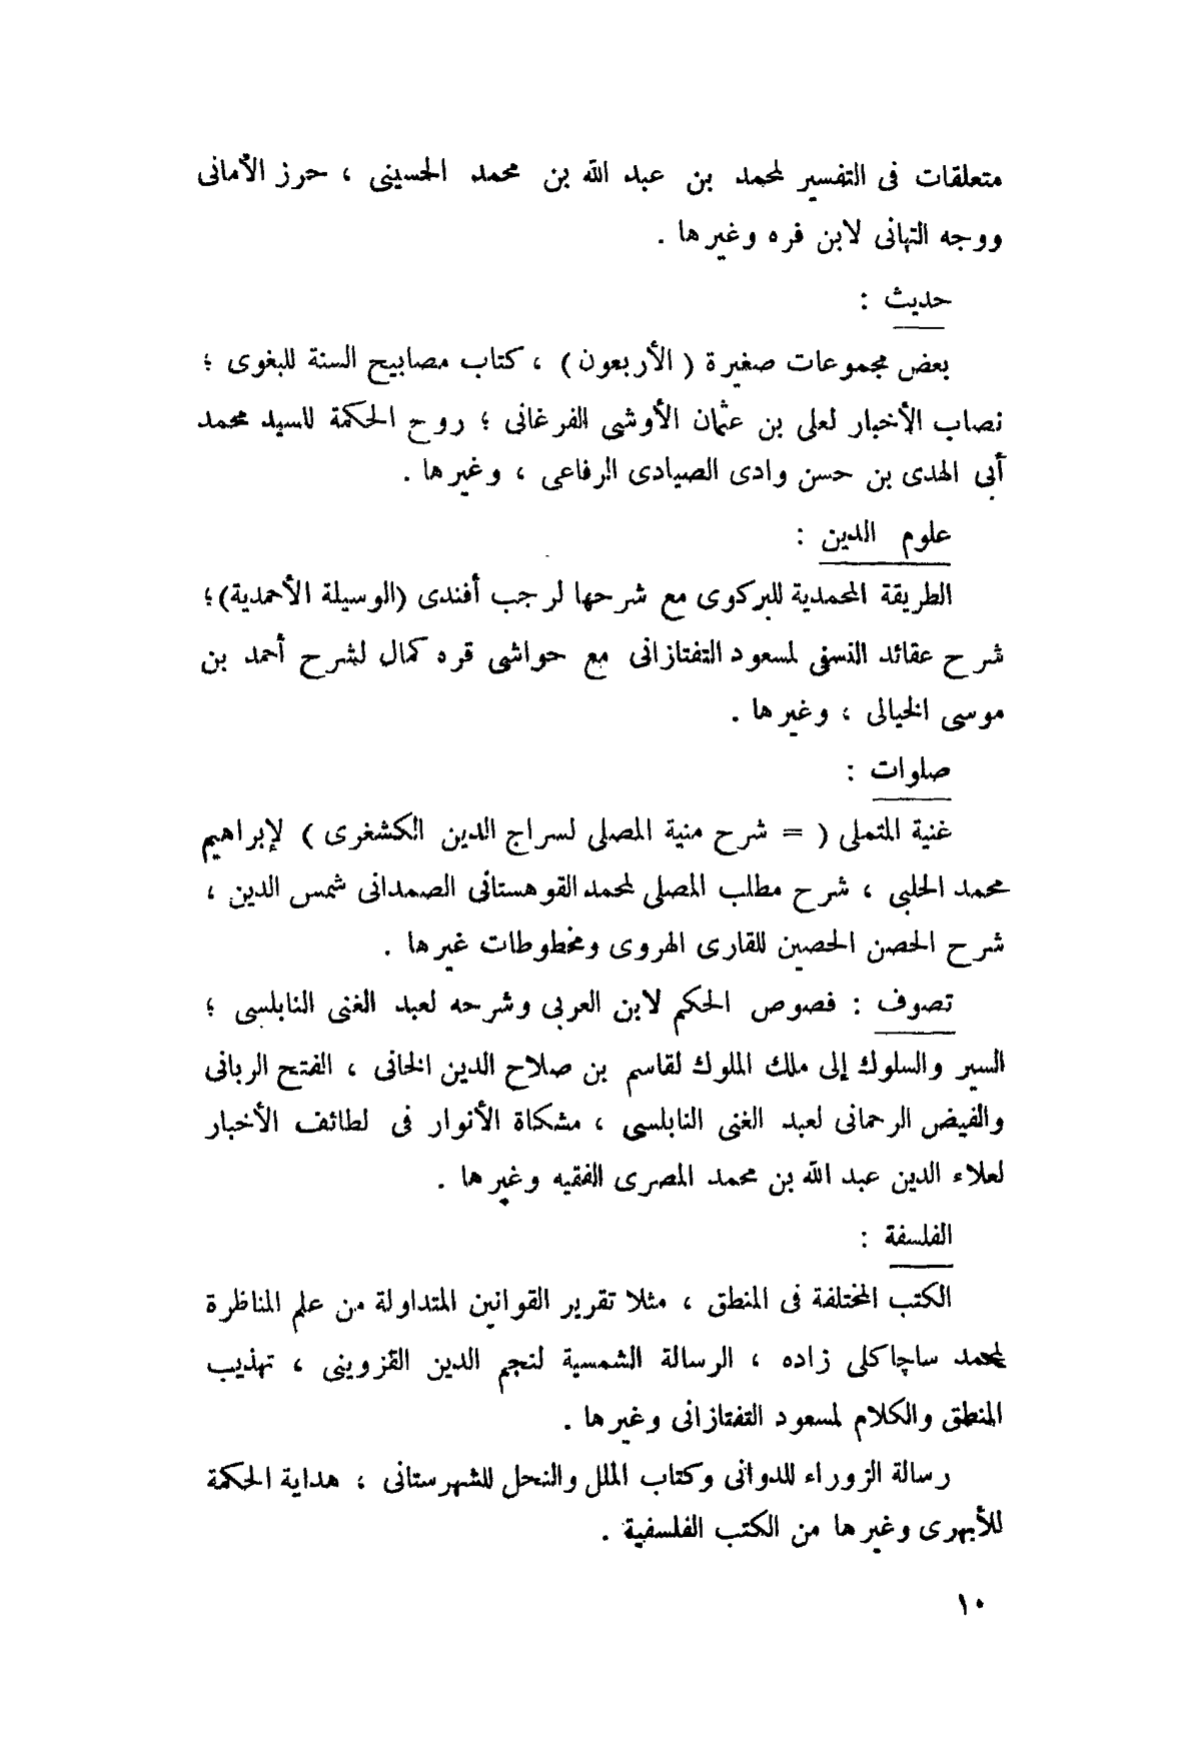 متعلقات فى التفسير لمحمد بن عبد الله بن محمد الحسينى ، حرز الأمانى
ووجه التهانى لابن فره وغيرها .
حديث :
بعض مجموعات صغيرة ( الأربعون ) ، كتاب مصابيح السنة للبغوى ؛
نصاب الأخبار لعلى بن عثمان الأوشى الفرغانى ؛ روح الحكمة للسيد محمد
أبى الهدى بن حسن وادى الصيادى الرفاعى ، وغيرها .
علوم الدين :
الطريقة المحمدية للبركوى مع شرحها لرجب أفندى (الوسيلة الأحمدية)؛
شرح عقائد النسفى لمسعود التفتازانى مع حواشى قره كمال لشرح أحمد بن
موسى الخيالى ، وغيرها .
صلوات :
غنية المتملى ( = شرح منية المصلى لسراج الدين الكشغرى ) لإبراهيم
محمد الحلبى ، شرح مطلب المصلى لمحمد القوهستانى الصمدانى شمس الدين ،
شرح الحصن الحصين للقارى الهروى ومخطوطات غيرها .
تصوف : فصوص الحكم لابن العربى وشرحه لعبد الغنى النابلسى ؛
السير والسلوك إلى ملك الملوك لقاسم بن صلاح الدين الخانى ، الفتح الربانى
والفيض الرحمانى لعبد الغنى النابلسى ، مشكاة الأنوار فى لطائف الأخبار
لعلاء الدين عبد الله بن محمد المصرى الفقيه وغيرها .
الفلسفة :
الكتب المختلفة فى المنطق ، مثلا تقرير القوانين المتداولة من علم المناظرة
لمحمد ساچاكلى زاده ، الرسالة الشمسية لنجم الدين القزوينى ، تهذيب
المنطق والكلام لمسعود التفتازانى وغيرها .
رسالة الزوراء للدوانى وكتاب الملل والنحل للشهرستانى ، هداية الحكمة
للأبهرى وغيرها من الكتب الفلسفية .
١٠